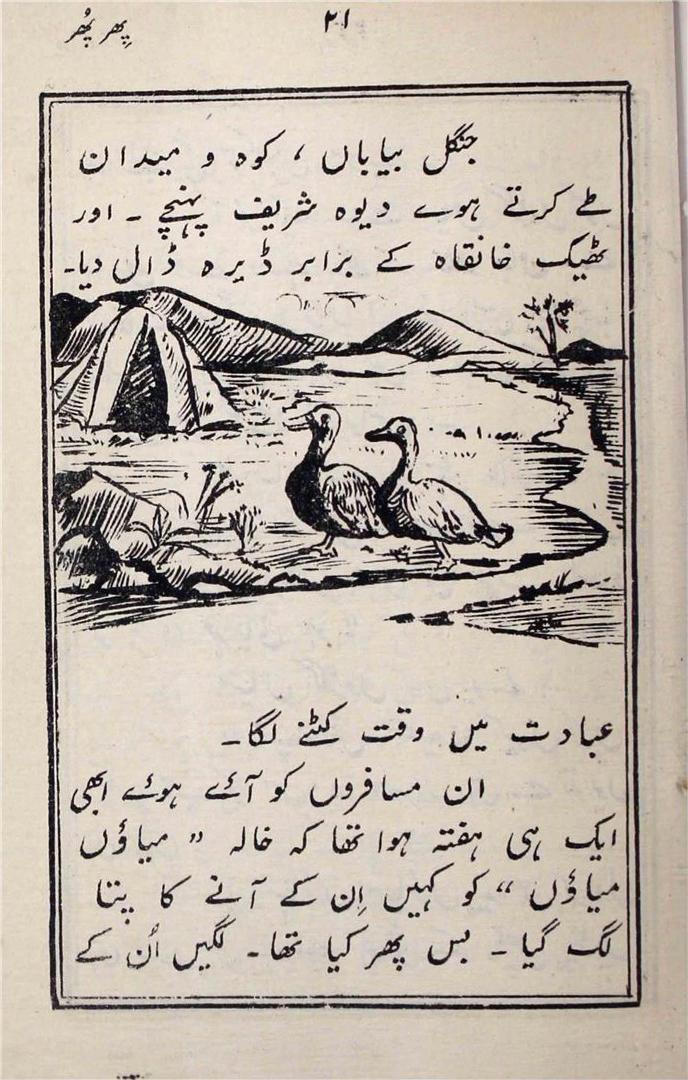 ۲۱
پِھر پھُر
جنگل بیاباں ، کوہ و میدان
طے کرتے ہوے دیوہ شریف پہنچے ۔ اور
ٹھیک خانقاہ کے برابر ڈیرہ ڈال دیا۔
عبادت میں وقت کٹنے لگا۔
ان مسافروں کو آئے ہوئے ابھی
ایک ہی ہفتہ ہوا تھا کہ خالہ " میاؤں
میاؤں " کو کہیں اِن کے آنے کا پتا
لگ گیا ۔ بس پھر کیا تھا۔ لگیں اُن کے